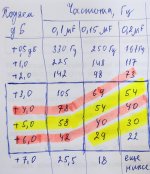 Подъем дБ Частота, Гц
0,1 мФ 0,15 мФ 0,2 мФ
+0,5 дБ 330 Гц 250 Гц 161 Гц
+1,0 225 148 117
+2,0 142 98 73
+3,0 105 69 54
+4,0 78 54 40
+5,0 58 40 30
+6,0 42 29 22
+7,0 25,5 18 еще ниже